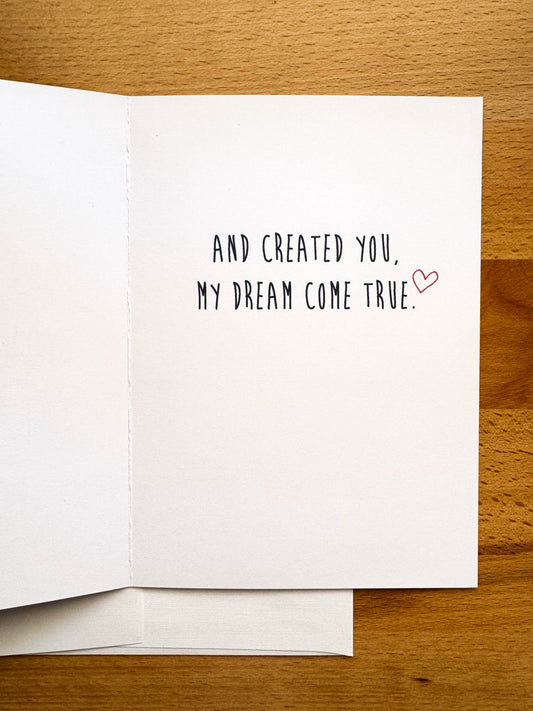 AND CREATED YOU,
MY DREAM COME TRUE.